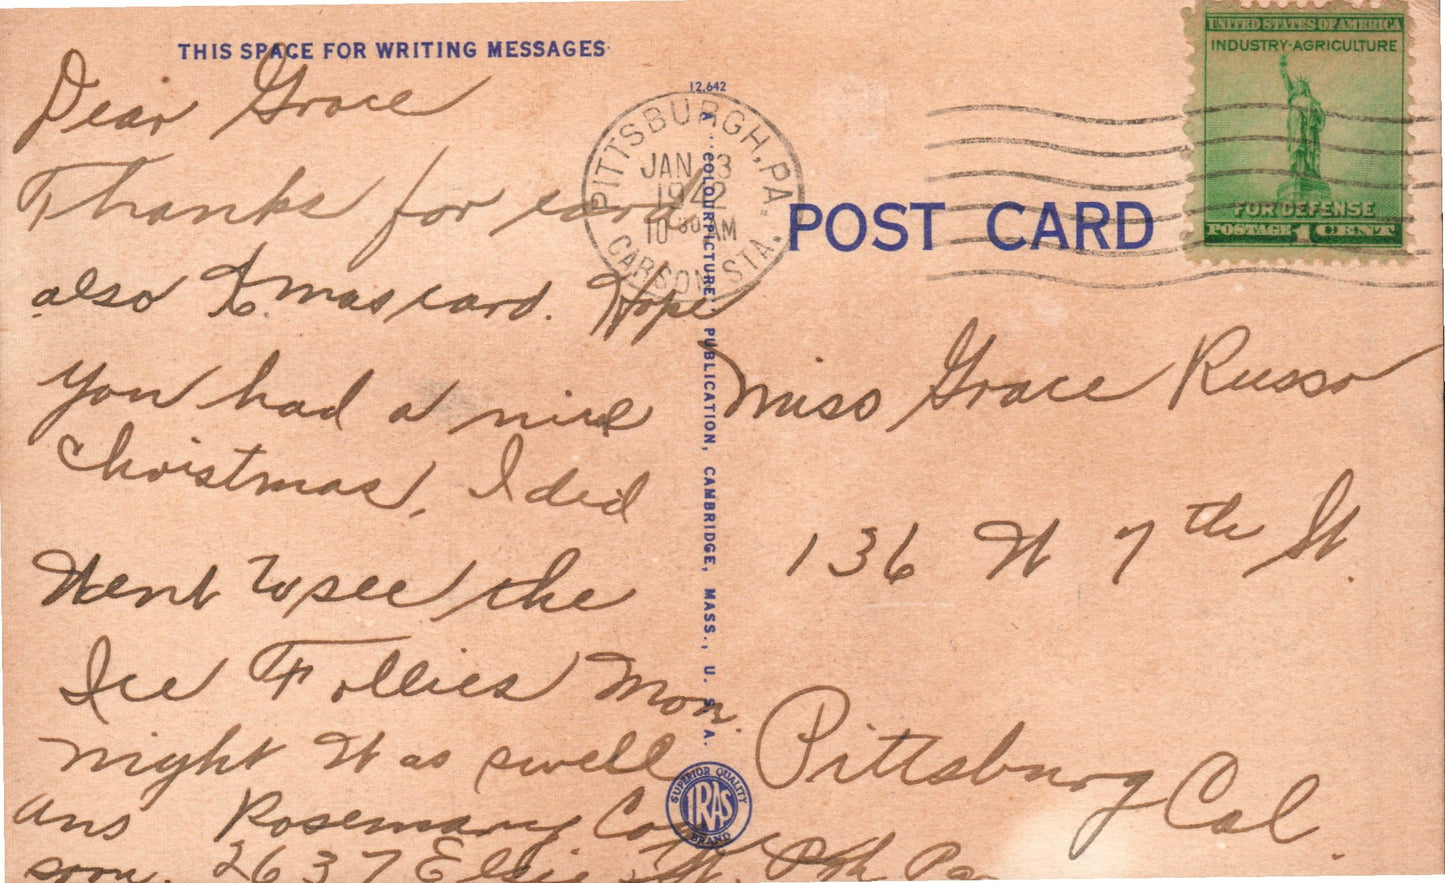 THIS SPACE FOR WRITING MESSAGES
Dear Grace
Thanks for card
also Xmas card. Hope
you had a nice
Christmas, I did
Went to see the
Ice Follies Mon.
night Was swell
Ans Rosemary
soon. 2637 Elsie St. Pgh Pa
12,642
A "COLOURPICTURE" PUBLICATION, CAMBRIDGE, MASS., U. S. A.
SUPERIOR QUALITY
IRAS
BRAND
PITTSBURGH, PA.
JAN 13
1942
10 30 AM
CARSON STA.
POST CARD
UNITED STATES OF AMERICA
INDUSTRY-AGRICULTURE
FOR DEFENSE
POSTAGE 1 CENT
Miss Grace Russo
136 W 7th St.
Pittsburg Cal.